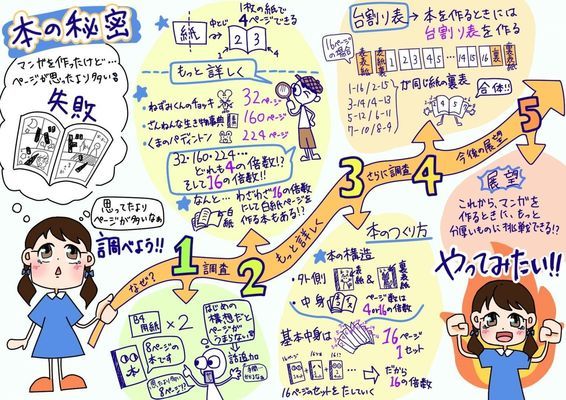 本の秘密
マンガを作ったけど…
ページが思ったより多い!
失敗
思ってたより
ページが多いなぁ
調べよう!!
なぜ?
1
調査
B4
用紙
×2
8ページの
本です
思ったより多い
8ページ!?
はじめの
構想だと
ページが
うまらない!
話追加
2
もっと詳しく
紙
中とじ
1枚の紙で
4ページできる
2
3
もっと詳しく
ねずみくんのチョッキ
32ページ
ざんねんな生き物事典
160ページ
くまのパディントン
224ページ
32・160・224…
どれも4の倍数!?
そして16の倍数!!
なんと…わざわざ16の倍数
にして白紙ページを
作る本もある!?
白紙
3
さらに調査
本のつくり方
本の構造
・外側
表表紙
&
裏表紙
・中身
ページ数は
4or16の倍数
基本中身は
16ページ
1セット
16ページのセットをたしていく
だから
16の倍数
4
台割り表
本を作るときには
台割り表を作る
16ページ
の場合
表表紙
表
1
2
3
4
5
…
14
15
16
裏
裏表紙
1-16/2-15
3-14/4-13
5-12/6-11
7-10/8-9
が同じ紙の裏表
合体!!
4
5
今後の展望
5
展望
これから、マンガを
作るときに、もっと
分厚いものに挑戦できる!?
やってみたい!!